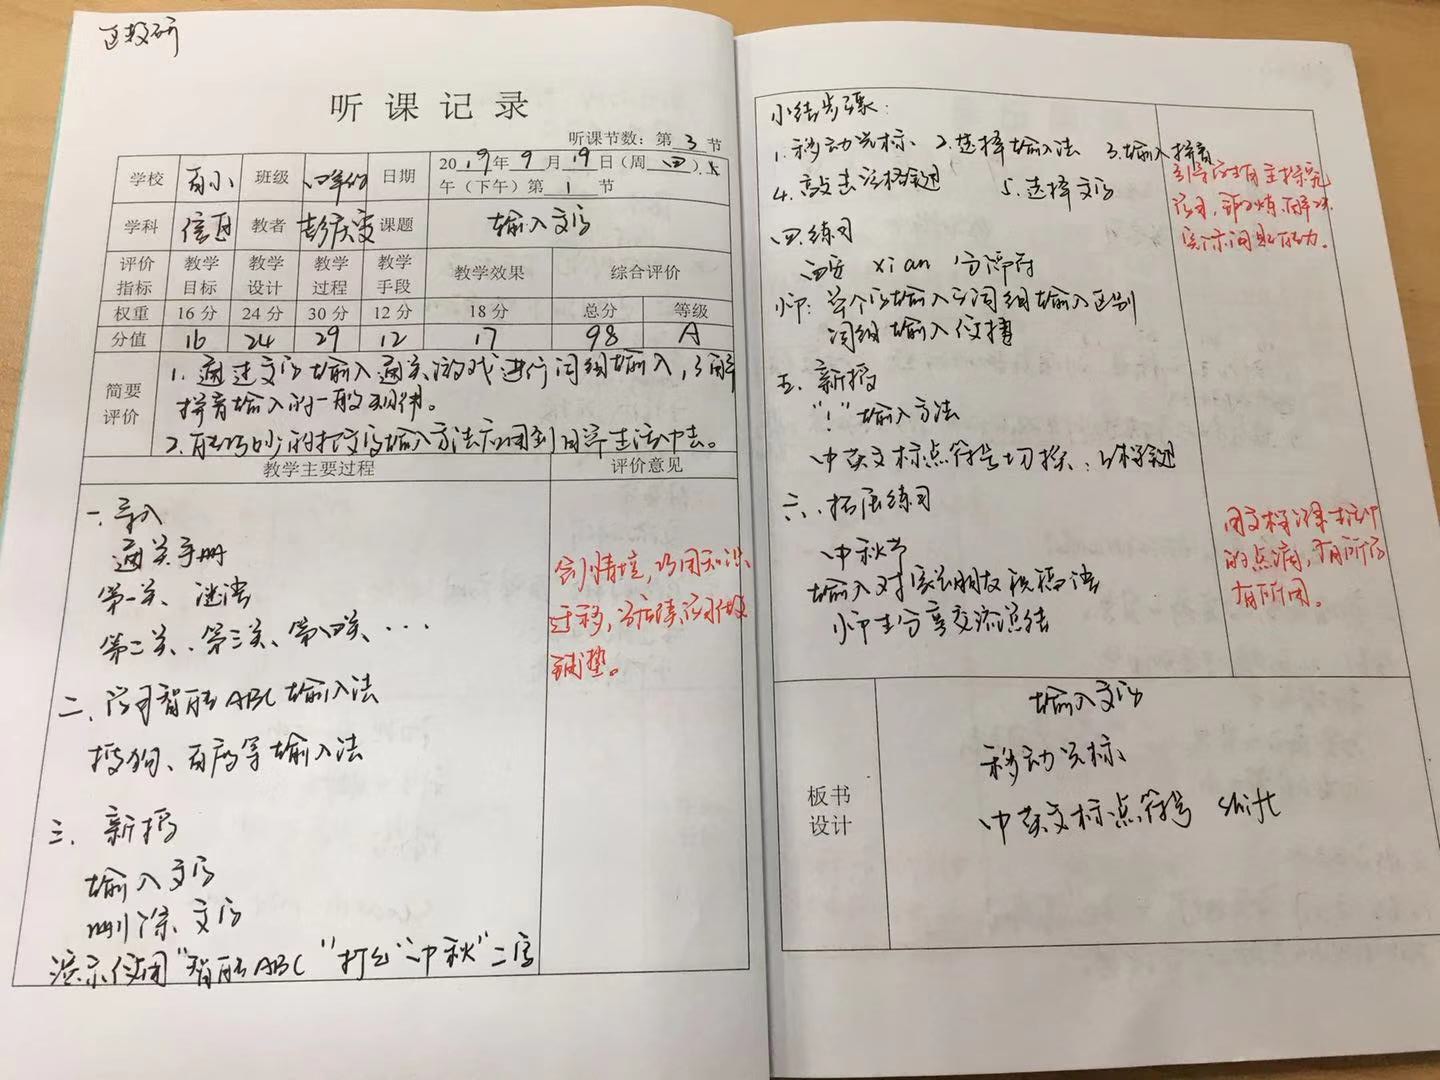 区教研
听课记录
听课节数：第3节
学校 班级 四年级 日期 2019年9月19日（周四）上
午（下午）第1节
学科 信息 教者 课题 输入文字
评价指标 教学目标 教学设计 教学过程 教学手段 教学效果 综合评价
权重 16分 24分 30分 12分 18分 总分 等级
分值 16 24 29 12 17 98 A
简要评价
1. 通过文字输入通关游戏进行词组输入，了解
拼音输入的一般规律。
2. 能巧妙的把文字输入方法应用到日常生活中去。
教学主要过程 评价意见
一、导入
通关手册
第一关、谜语
第二关、第三关、第四关、...
二、学习智能ABC输入法
搜狗、百度等输入法
三、新授
输入文字
删除文字
演示使用“智能ABC”打出“中秋”二字
创情境，巧用知识
迁移，为后续学习做
铺垫。
小结步骤：
1. 移动光标 2. 选择输入法 3. 输入拼音
4. 敲击空格键 5. 选择文字
四、练习
西安 xi an 分隔符
师：单个字输入与词组输入区别
词组输入便捷
五、新授
“！”输入方法
中英文标点符号切换：
六、拓展练习
中秋节
输入对家长朋友祝福语
师生分享交流总结
引导学生自主探究
学习，锻炼解决
实际问题能力。
用文档记录生活中
的点滴，有所学
有所用。
板书设计
输入文字
移动光标
中英文标点符号 shift